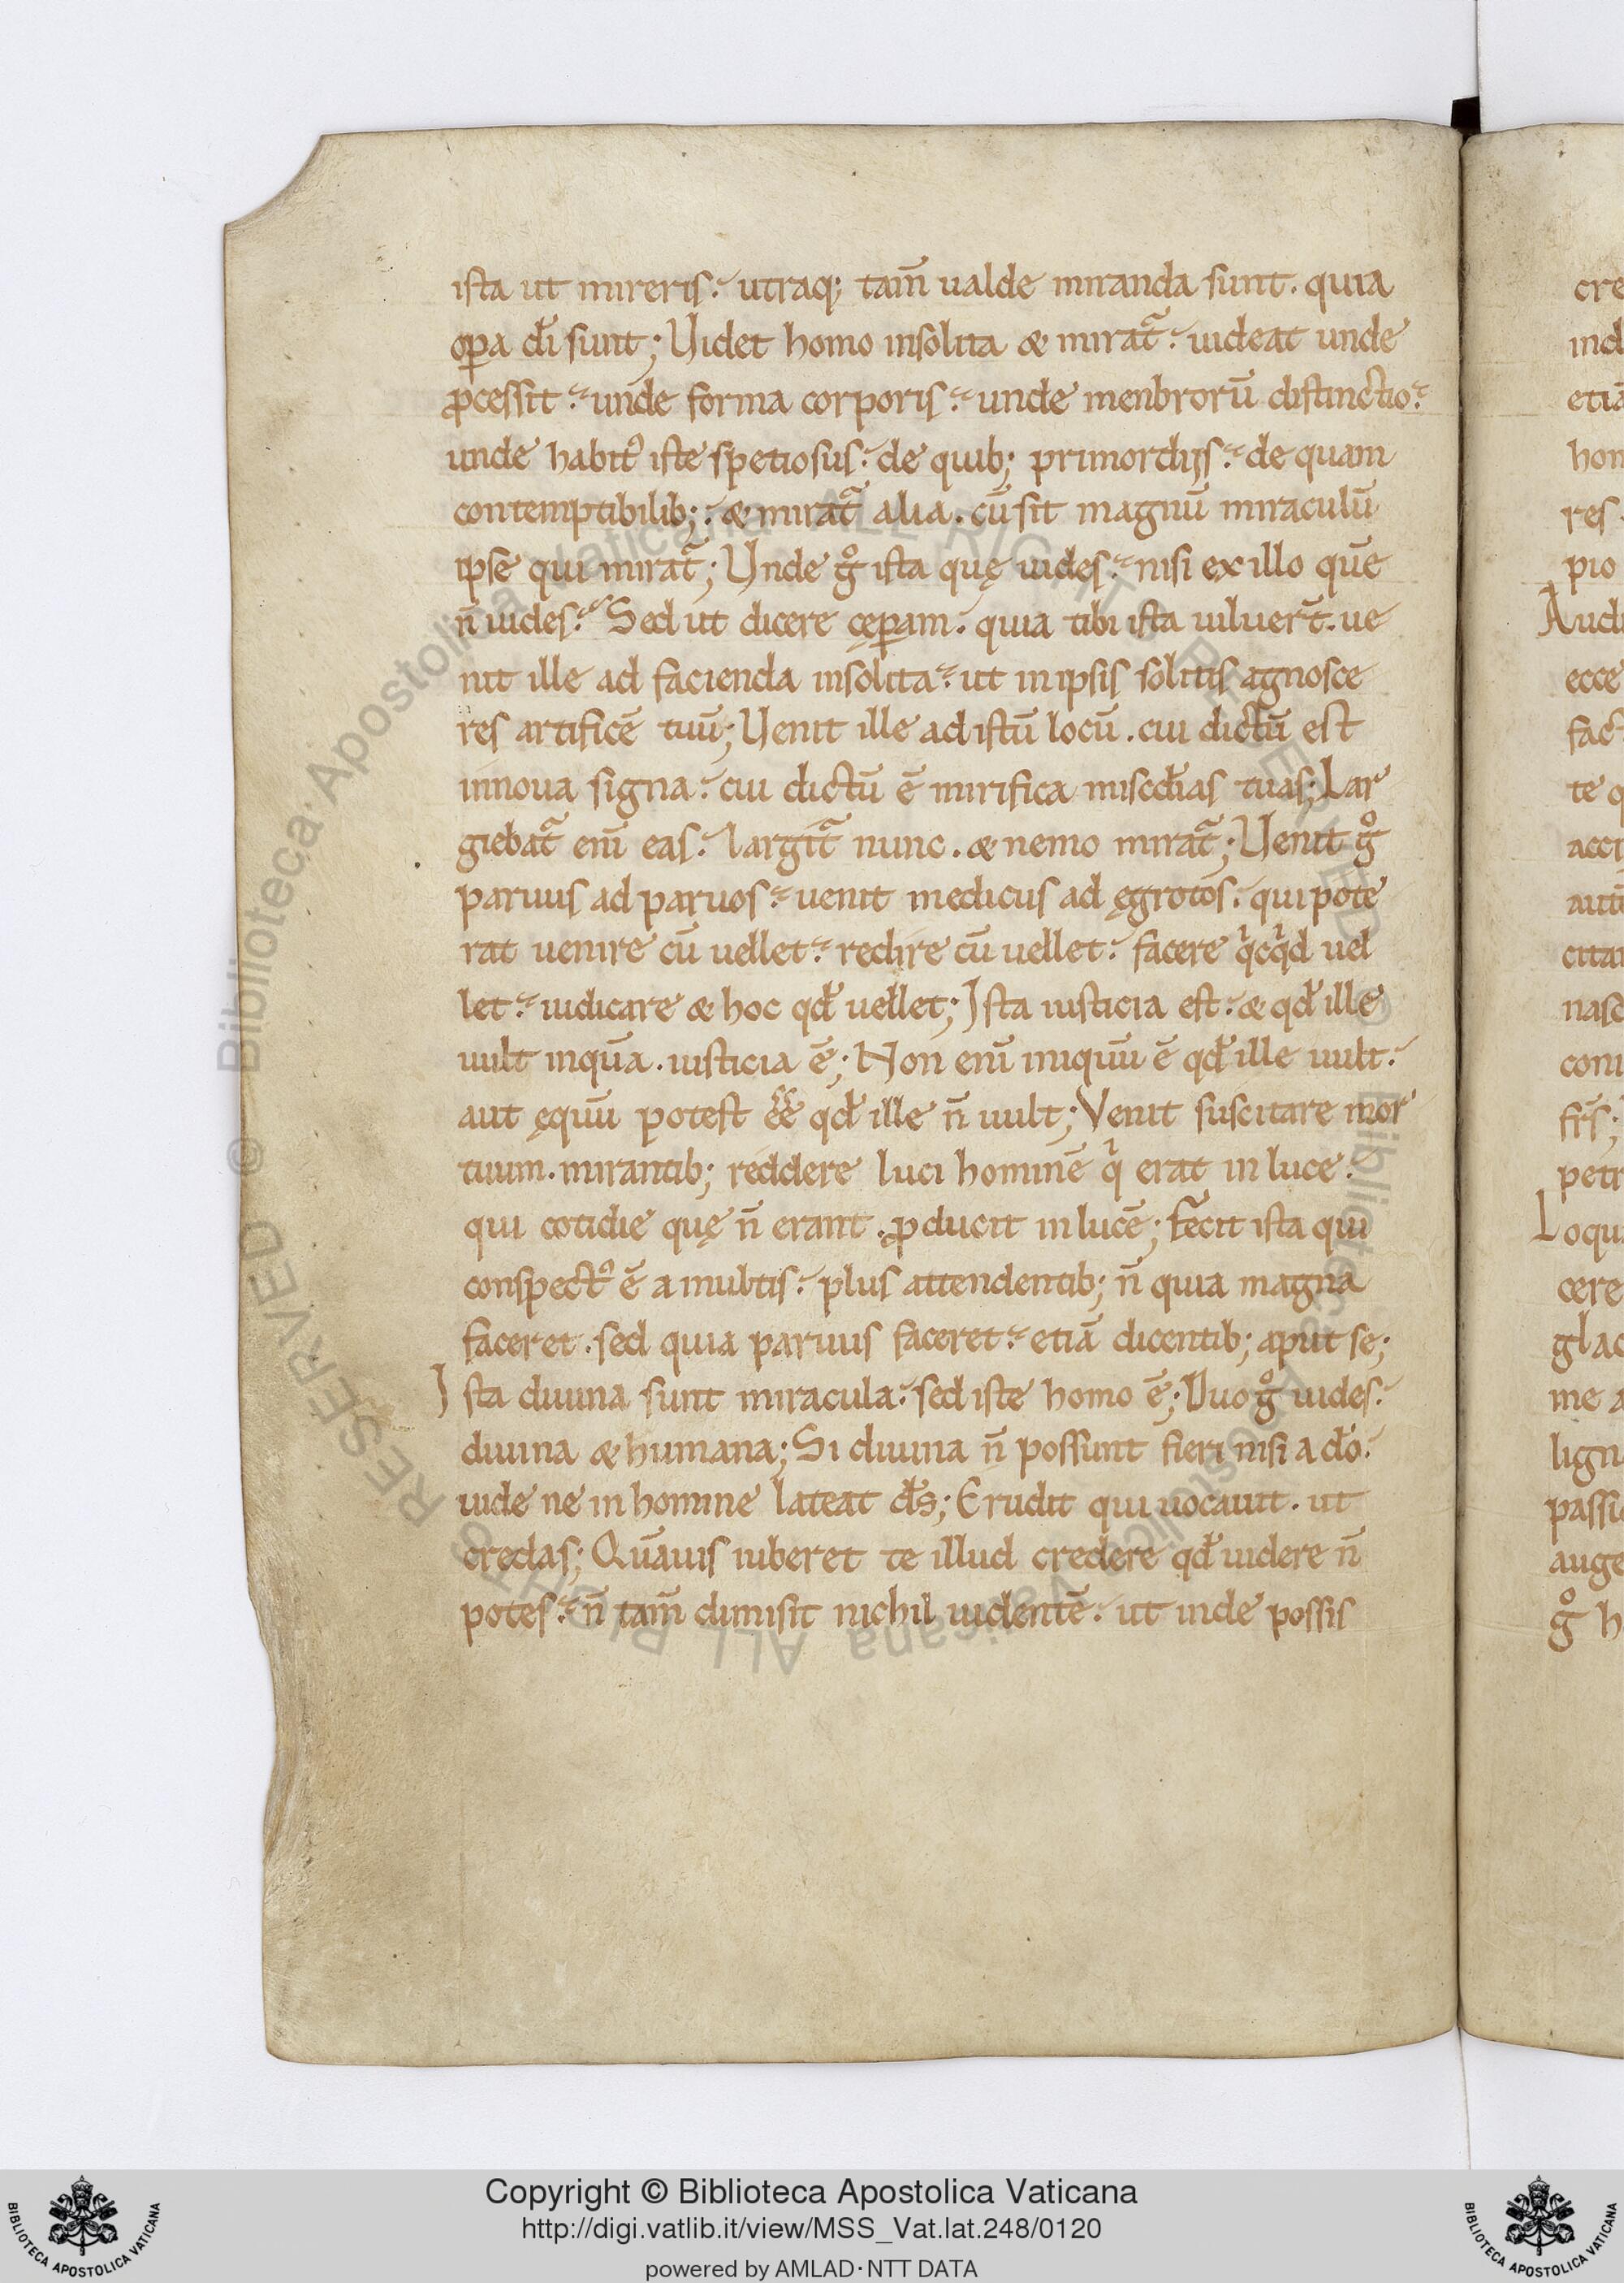 ista ut mireris. utraq; tam̄ ualde miranda sunt. quia
oꝑa dī sunt; Uidet homo insolita & mirat᷑. uideat unde
ꝓcessit. unde forma corporis. unde menbrorū distinctio.
unde habitꝰ iste spetiosus. de quib; primordijs. de quam
contemptibilib;. & mirat᷑ alia. cū sit magnū miraculū
ipse qui mirat᷑; Unde gͦ ista quę uides. nisi ex illo quē
n̄ uides. Sed ut dicere cęꝑam. quia tibi ista uiluer̄t. ue
nit ille ad facienda insolita. ut in ipsis solitis agnosce
res artificē tuū; Uenit ille ad istū locū. cui dictū est
innoua signa. cui dictū ē mirifica misc̄dias tuas; Lar
giebat᷑ eni̅ eas. largit᷑ nunc. & nemo mirat᷑; Uenit gͦ
paruus ad paruos. uenit medicus ad ęgrotos. qui pote
rat uenire cū uellet. redire cū uellet. facere qͥcqͥd uel
let. iudicare & hoc qđ uellet; Ista iusticia est. & qđ ille
uult inquā. iusticia ē; Non eni̅ iniquū ē qđ ille uult.
aut ęquū potest ēē qđ ille n̄ uult; Venit suscitare mor
tuum. mirantib; reddere luci hominē qͥ erat in luce.
qui cotidie quę n̄ erant. ꝓducit in lucē; Fecit ista qui
conspectꝰ ē a multis. plus attendentib; n̄ quia magna
faceret. sed quia paruus faceret. etiā dicentib; aput se;
Ista diuina sunt miracula. sed iste homo ē; Duo gͦ uides.
diuina & humana; Si diuina n̄ possunt fieri nisi a dō.
uide ne in homine lateat ds̄; Erudit qui uocauit. ut
credas; Quāuis iuberet te illud credere qđ uidere n̄
potes. n̄ tam̄ dimisit nichil uidentē. ut inde possis
cre
etiā
hom
res
pio
ecce
te q
nasc
petr
Loqu
cere
me a
lign
passi
auge
gͦ h
© Biblioteca Apostolica Vaticana ALL RIGHTS RESERVED
© Biblioteca Apostolica Vaticana ALL RIGHTS RESERVED
BIBLIOTECA APOSTOLICA VATICANA
Copyright © Biblioteca Apostolica Vaticana
http://digi.vatlib.it/view/MSS_Vat.lat.248/0120
powered by AMLAD·NTT DATA
BIBLIOTECA APOSTOLICA VATICANA